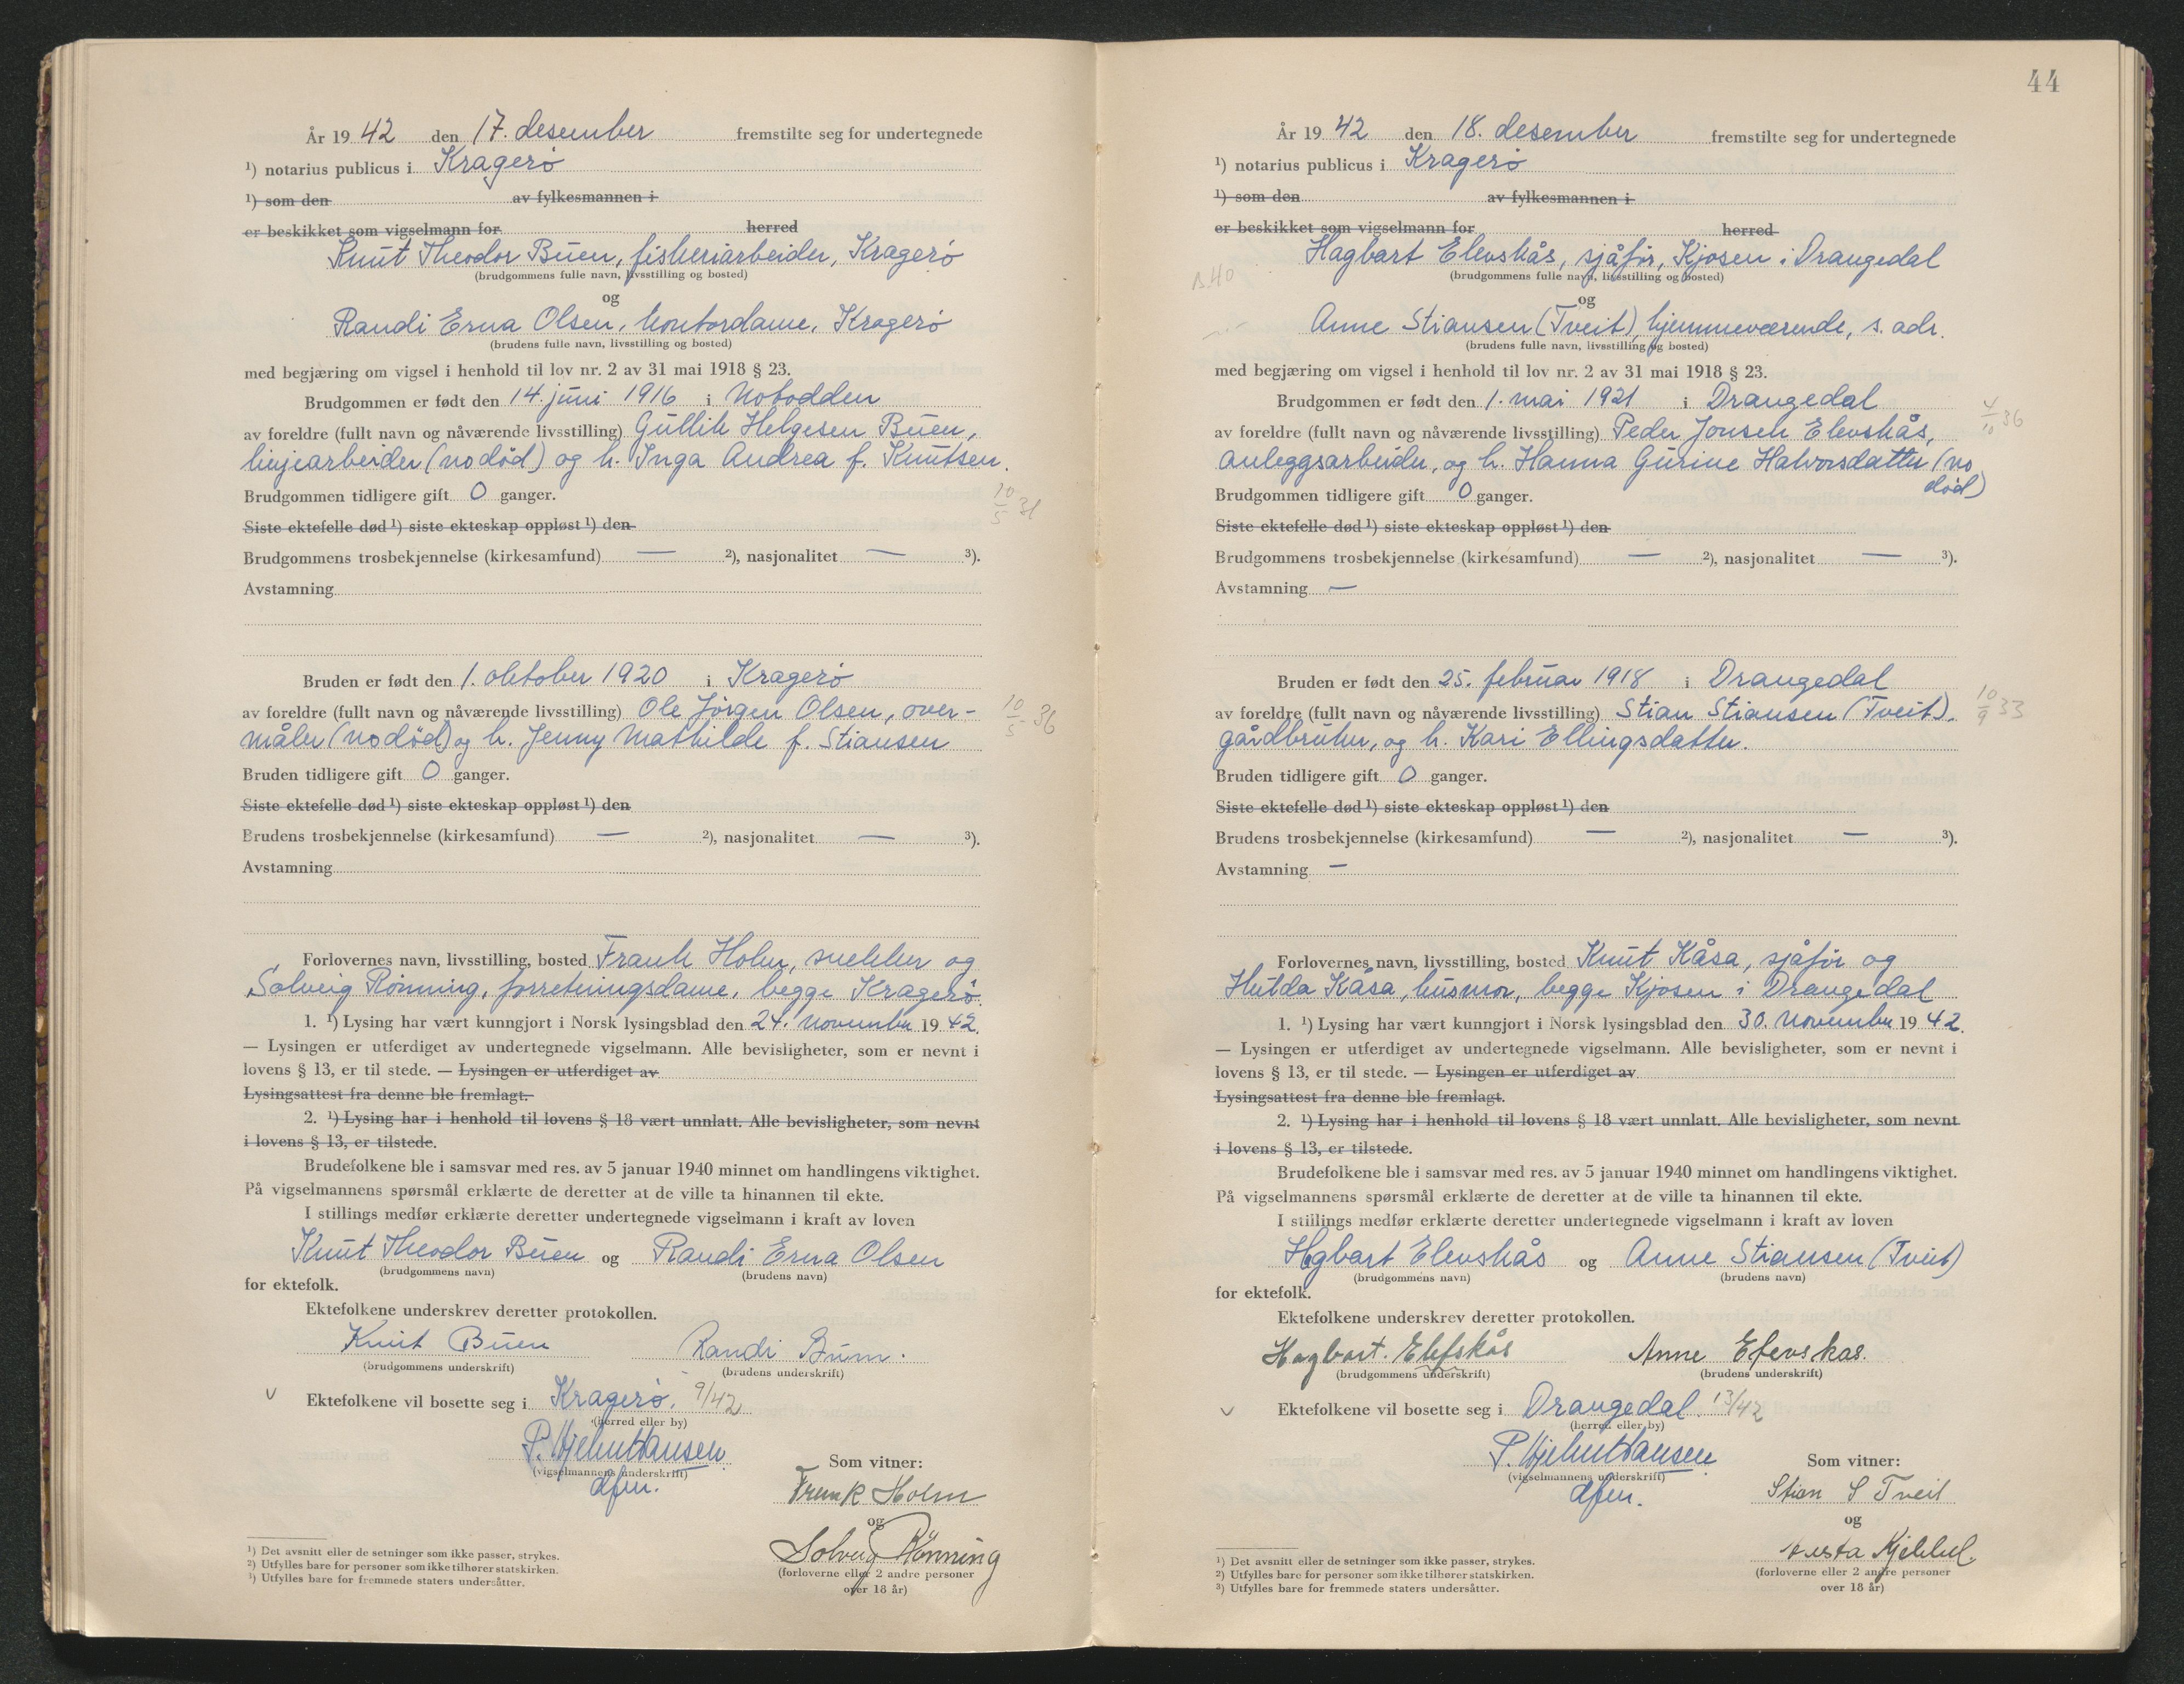 År 19 42 den 17. desember fremstilte seg for undertegnede
¹) notarius publicus i Kragerø
¹) som den av fylkesmannen i
er beskikket som vigselmann for herred
Knut Theodor Buen, fiskeriarbeider, Kragerø
(brudgommens fulle navn, livsstilling og bosted)
og
Randi Erna Olsen, kontordame, Kragerø
(brudens fulle navn, livsstilling og bosted)
med begjæring om vigsel i henhold til lov nr. 2 av 31 mai 1918 § 23.
Brudgommen er født den 14. juni 1916 i Notodden
av foreldre (fullt navn og nåværende livsstilling) Gullik Helgesen Buen,
linjearbeider (no død) og h. Inga Andrea f. Knutsen.
Brudgommen tidligere gift 0 ganger.
10/5 31
Siste ektefelle død ¹) siste ekteskap oppløst ¹) den
Brudgommens trosbekjennelse (kirkesamfund) — ²), nasjonalitet — ³).
Avstamning
Bruden er født den 1. oktober 1920 i Kragerø
av foreldre (fullt navn og nåværende livsstilling) Ole Jørgen Olsen, over-
10/5 36
måler (no død) og h. Jenny Mathilde f. Stiansen
Bruden tidligere gift 0 ganger.
Siste ektefelle død ¹) siste ekteskap oppløst ¹) den
Brudens trosbekjennelse (kirkesamfund) — ²), nasjonalitet — ³).
Avstamning
Forlovernes navn, livsstilling, bosted Frank Holm, snekker og
Solveig Rønning, forretningsdame, begge Kragerø.
1. ¹) Lysing har vært kunngjort i Norsk lysingsblad den 24. november 19 42.
— Lysingen er utferdiget av undertegnede vigselmann. Alle bevisligheter, som er nevnt i
lovens § 13, er til stede. — Lysingen er utferdiget av
Lysingsattest fra denne ble fremlagt.
2. ¹) Lysing har i henhold til lovens § 18 vært unnlatt. Alle bevisligheter, som nevnt
i lovens § 13, er tilstede.
Brudefolkene ble i samsvar med res. av 5 januar 1940 minnet om handlingens viktighet.
På vigselmannens spørsmål erklærte de deretter at de ville ta hinannen til ekte.
I stillings medfør erklærte deretter undertegnede vigselmann i kraft av loven
Knut Theodor Buen og Randi Erna Olsen
(brudgommens navn) (brudens navn)
for ektefolk.
Ektefolkene underskrev deretter protokollen.
Knut Buen Randi Buen.
(brudgommens underskrift) (brudens underskrift)
v Ektefolkene vil bosette seg i Kragerø. 9/42
(herred eller by)
P. Hjelm Hansen
(vigselmannens underskrift)
dfm.
Som vitner:
Frank Holm
og
Solveig Rönning
(forloverne eller 2 andre personer
over 18 år)
¹) Det avsnitt eller de setninger som ikke passer, strykes.
²) Utfylles bare for personer som ikke tilhører statskirken.
³) Utfylles bare for fremmede staters undersåtter.
44
År 19 42 den 18. desember fremstilte seg for undertegnede
¹) notarius publicus i Kragerø
¹) som den av fylkesmannen i
er beskikket som vigselmann for herred
Hagbart Elevskås, sjåfør, Kjosen i Drangedal
(brudgommens fulle navn, livsstilling og bosted)
og
Anne Stiansen (Tveit), hjemmeværende, s. adr.
(brudens fulle navn, livsstilling og bosted)
med begjæring om vigsel i henhold til lov nr. 2 av 31 mai 1918 § 23.
Brudgommen er født den 1. mai 1921 i Drangedal
4/10 36
av foreldre (fullt navn og nåværende livsstilling) Peder Jonsen Elevskås,
anleggsarbeider, og h. Hanna Gurine Halvorsdatter (no
død)
Brudgommen tidligere gift 0 ganger.
Siste ektefelle død ¹) siste ekteskap oppløst ¹) den
Brudgommens trosbekjennelse (kirkesamfund) — ²), nasjonalitet — ³).
Avstamning —
Bruden er født den 25. februar 1918 i Drangedal
10/9 33
av foreldre (fullt navn og nåværende livsstilling) Stian Stiansen (Tveit),
gårdbruker, og h. Kari Ellingsdatter.
Bruden tidligere gift 0 ganger.
Siste ektefelle død ¹) siste ekteskap oppløst ¹) den
Brudens trosbekjennelse (kirkesamfund) — ²), nasjonalitet — ³).
Avstamning —
Forlovernes navn, livsstilling, bosted Knut Kåsa, sjåfør og
Hulda Kåsa, husmor, begge Kjosen i Drangedal
1. ¹) Lysing har vært kunngjort i Norsk lysingsblad den 30. november 19 42.
— Lysingen er utferdiget av undertegnede vigselmann. Alle bevisligheter, som er nevnt i
lovens § 13, er til stede. — Lysingen er utferdiget av
Lysingsattest fra denne ble fremlagt.
2. ¹) Lysing har i henhold til lovens § 18 vært unnlatt. Alle bevisligheter, som nevnt
i lovens § 13, er tilstede.
Brudefolkene ble i samsvar med res. av 5 januar 1940 minnet om handlingens viktighet.
På vigselmannens spørsmål erklærte de deretter at de ville ta hinannen til ekte.
I stillings medfør erklærte deretter undertegnede vigselmann i kraft av loven
Hagbart Elevskås og Anne Stiansen (Tveit)
(brudgommens navn) (brudens navn)
for ektefolk.
Ektefolkene underskrev deretter protokollen.
Hagbart. Elefskås Anne Efevskas.
(brudgommens underskrift) (brudens underskrift)
v Ektefolkene vil bosette seg i Drangedal. 13/42
(herred eller by)
P. Hjelm Hansen
(vigselmannens underskrift)
dfm.
Som vitner:
Stian S Tveit
og
(forloverne eller 2 andre personer
over 18 år)
¹) Det avsnitt eller de setninger som ikke passer, strykes.
²) Utfylles bare for personer som ikke tilhører statskirken.
³) Utfylles bare for fremmede staters undersåtter.